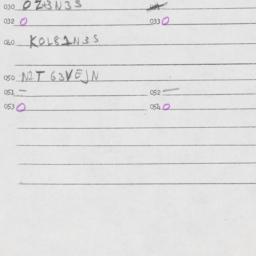 030 OZ43N3S
032 O 033 O
040 KOL81N3S
050 N2T 63VEJN
051 — 052 —
053 O 054 O